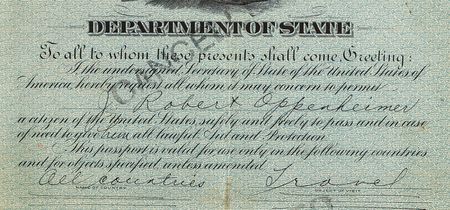 DEPARTMENT OF STATE
To all to whom these presents shall come, Greeting:
I the undersigned, Secretary of State of the United States of
America, hereby request all whom it may concern to permit
J. Robert Oppenheimer
a citizen of the United States, safely and freely to pass and in case
of need to give him all lawful Aid and Protection.
This passport is valid for use only in the following countries
and for objects specified, unless amended
All countries Travel
NAME OF COUNTRY OBJECT OF VISIT